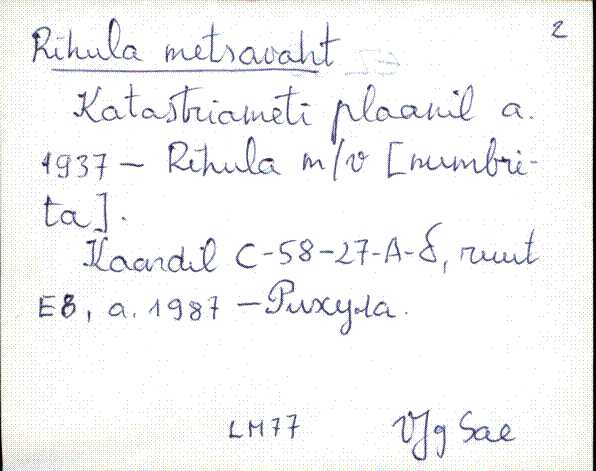 2
Rihula metsavaht
Katastriameti plaanil a.
1937 – Rihula m/v [numbri-
ta].
Kaardil C-58-27-A-б, ruut
E8, a. 1987 – Рихула.
LM77
VJg Sae